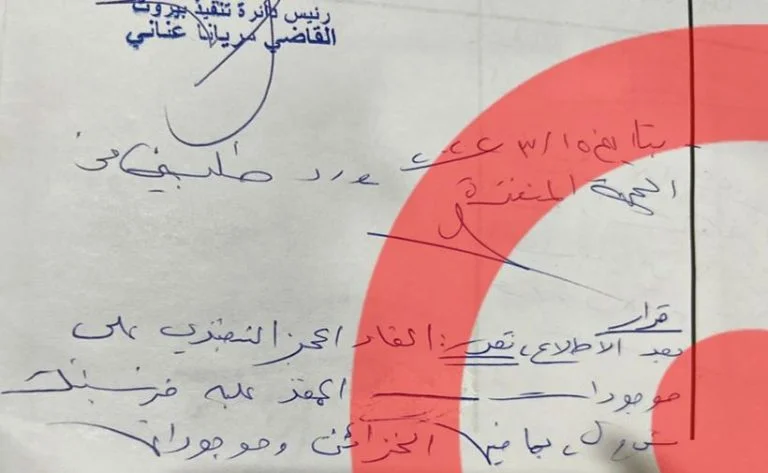 رئيس دائرة تنفيذ بيروت
القاضي مريانا عناني
بتاريخ ١٥/٣/٢٠٢٢ ورد طلب من
الجهة المنفذة
قرار
بعد الاطلاع، تقرر: القاء الحجز التنفيذي على
موجودات المنفذ عليه فرنسبنك
ش م ل، بما فيها الخزائن وموجوداتها